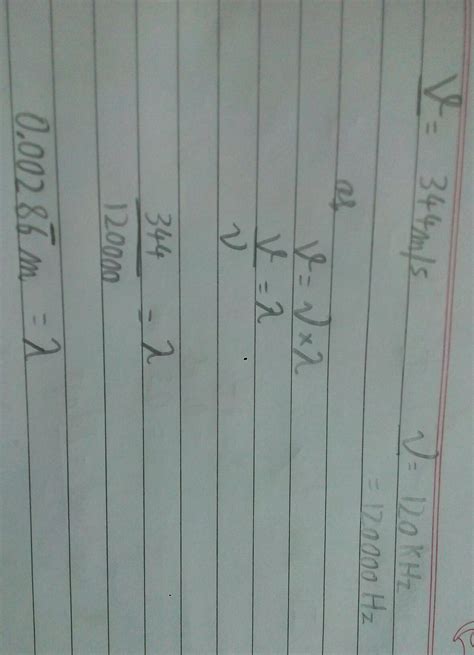 V = 344m/s ν = 120KHz
= 120000Hz
as
V = ν × λ
V/ν = λ
344/120000 = λ
0.00286̅ m = λ